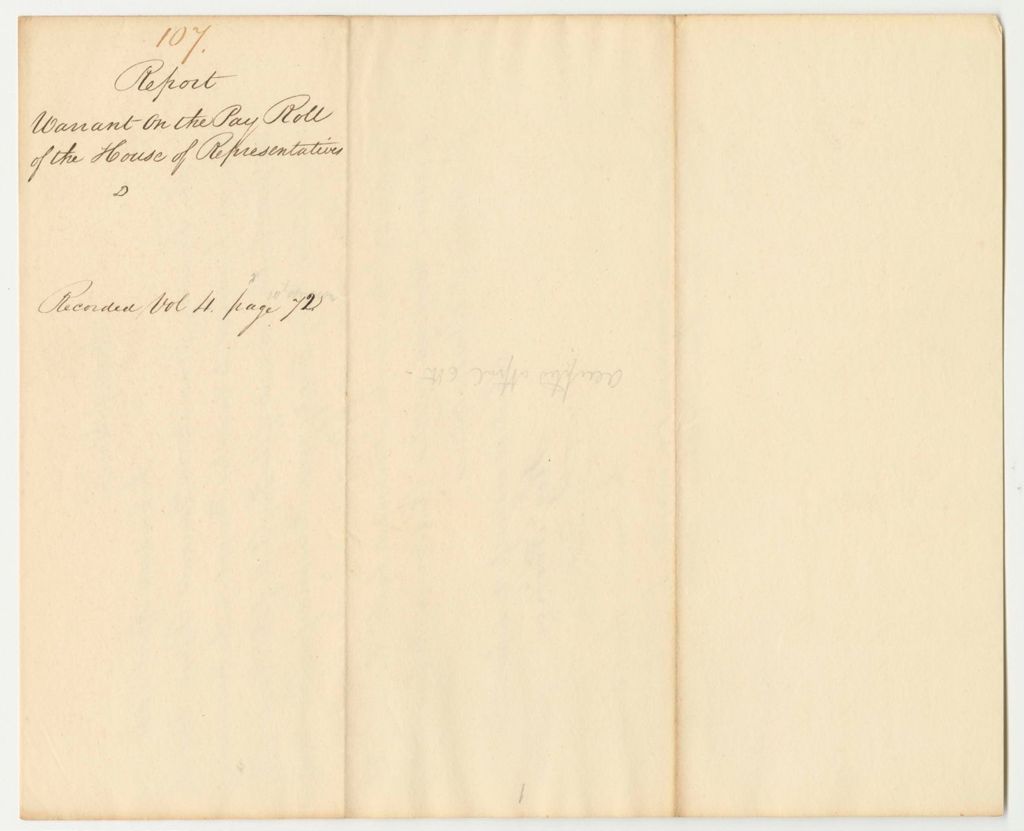 107.
Report
Warrant on the Pay Roll
of the House of Representatives
D
Recorded Vol 4. page 72
accepted April 6th -
1